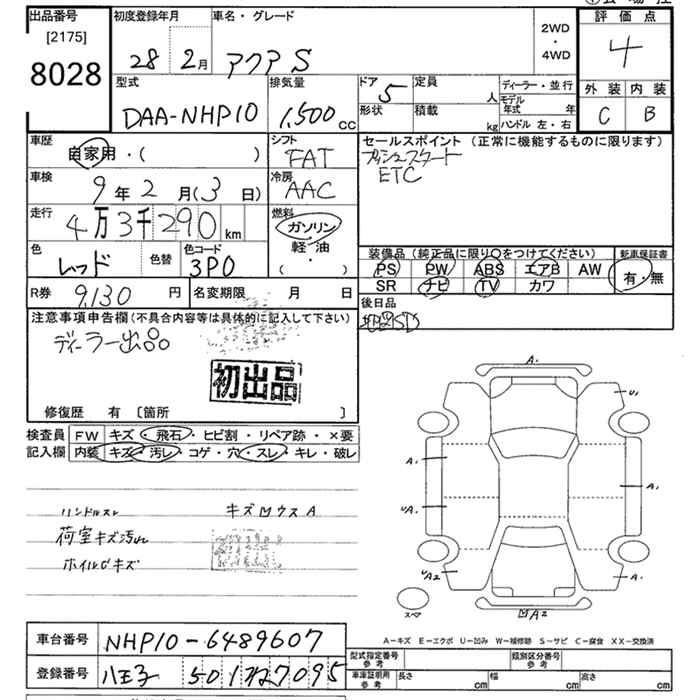 出品番号
[2175]
8028
初度登録年月
28 2月
車名・グレード
アクア S
2WD
・
4WD
評価点
4
外装 内装
C B
型式
DAA-NHP10
排気量
1,500 CC
ドア 5
形状
定員 人
積載 kg
ディーラー・並行
モデル年式 年
ハンドル 左・右
車歴
自家用・( )
シフト
FAT
車検
9年2月(3日)
冷房
AAC
走行
4万3千290km
燃料
ガソリン
軽・油
( ・ )
色
レッド
色替
色コード
3P0
セールスポイント (正常に機能するものに限ります)
プッシュスタート
ETC
装備品 (純正品に限り○をつけてください)
PS PW ABS エアB AW
SR ナビ TV カワ
新車保証書
有・無
R券 9,130円
名変期限 月 日
後日品
注意事項申告欄 (不具合内容等は具体的に記入して下さい)
ディーラー出品
初出品
修復歴 有 [箇所 ]
検査員記入欄
FW キズ・飛石・ヒビ割・リペア跡・×要
内装 キズ・汚レ・コゲ・穴・スレ・キレ・破レ
ハンドルスレ
荷室キズ汚レ
A.
U1
A.
A.
UA.
UA2
A.
スペア
A2
車台番号 NHP10-6489607
登録番号 八王子 501
A-キズ E-エクボ U-凹み W-補修跡 S-サビ C-腐食 XX-交換済
型式指定番号
参考
類別区分番号
参考
車庫証明用
参考
長さ cm
幅 cm
高さ cm